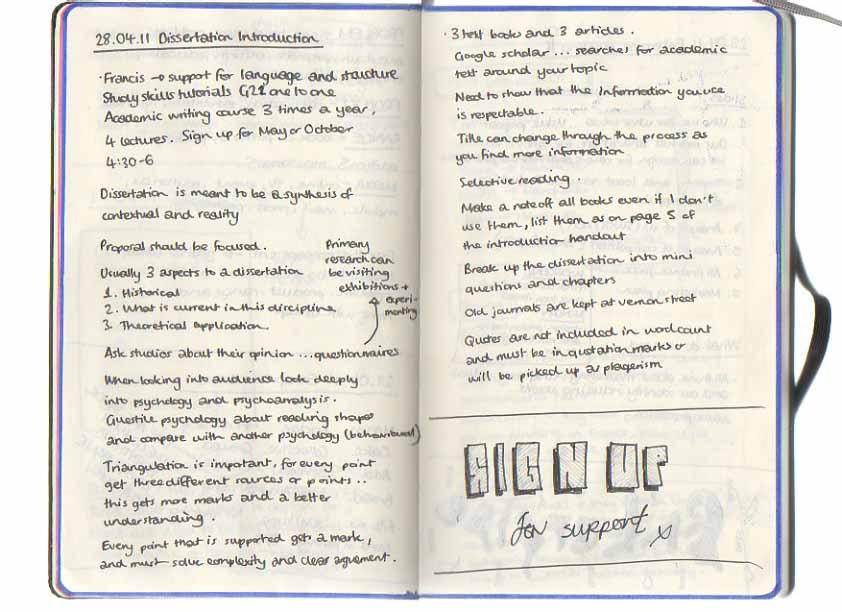 28.04.11 Dissertation Introduction
·Francis → support for language and structure
Study skills tutorials G22 one to one
Academic writing course 3 times a year,
4 lectures. Sign up for May or October
4:30-6
Dissertation is meant to be a synthesis of
contextual and reality
Proposal should be focused.
Usually 3 aspects to a dissertation
1. Historical
2. What is current in this discipline
3. Theoretical application.
Primary
research can
be visiting
exhibitions +
experi-
menting
Ask studios about their opinion ... questionnaires
When looking into audience look deeply
into psychology and psychoanalysis.
psychology about reading shapes
and compare with another psychology (behaviourist)
Triangulation is important, for every point
get three different sources or points..
this gets more marks and a better
understanding.
Every point that is supported gets a mark,
and must solve complexity and clear agument.
· 3 test books and 3 articles.
Google scholar ... searches for academic
text around your topic
Need to show that the information you use
is respectable.
Title can change through the process as
you find more information
Selective reading.
Make a note off all books even if I don't
use them, list them as on page 5 of
the introduction handout
Break up the dissertation into mini
questions and chapters
Old journals are kept at vernon street
Quotes are not included in word count
and must be in quotation marks or
will be picked up as plagerism
SIGN UP
for support x